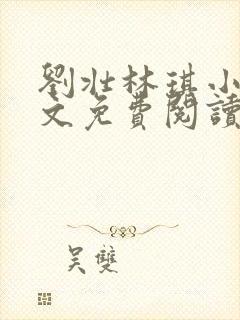 劉壯林琪小
文免費閱讀
吴雙